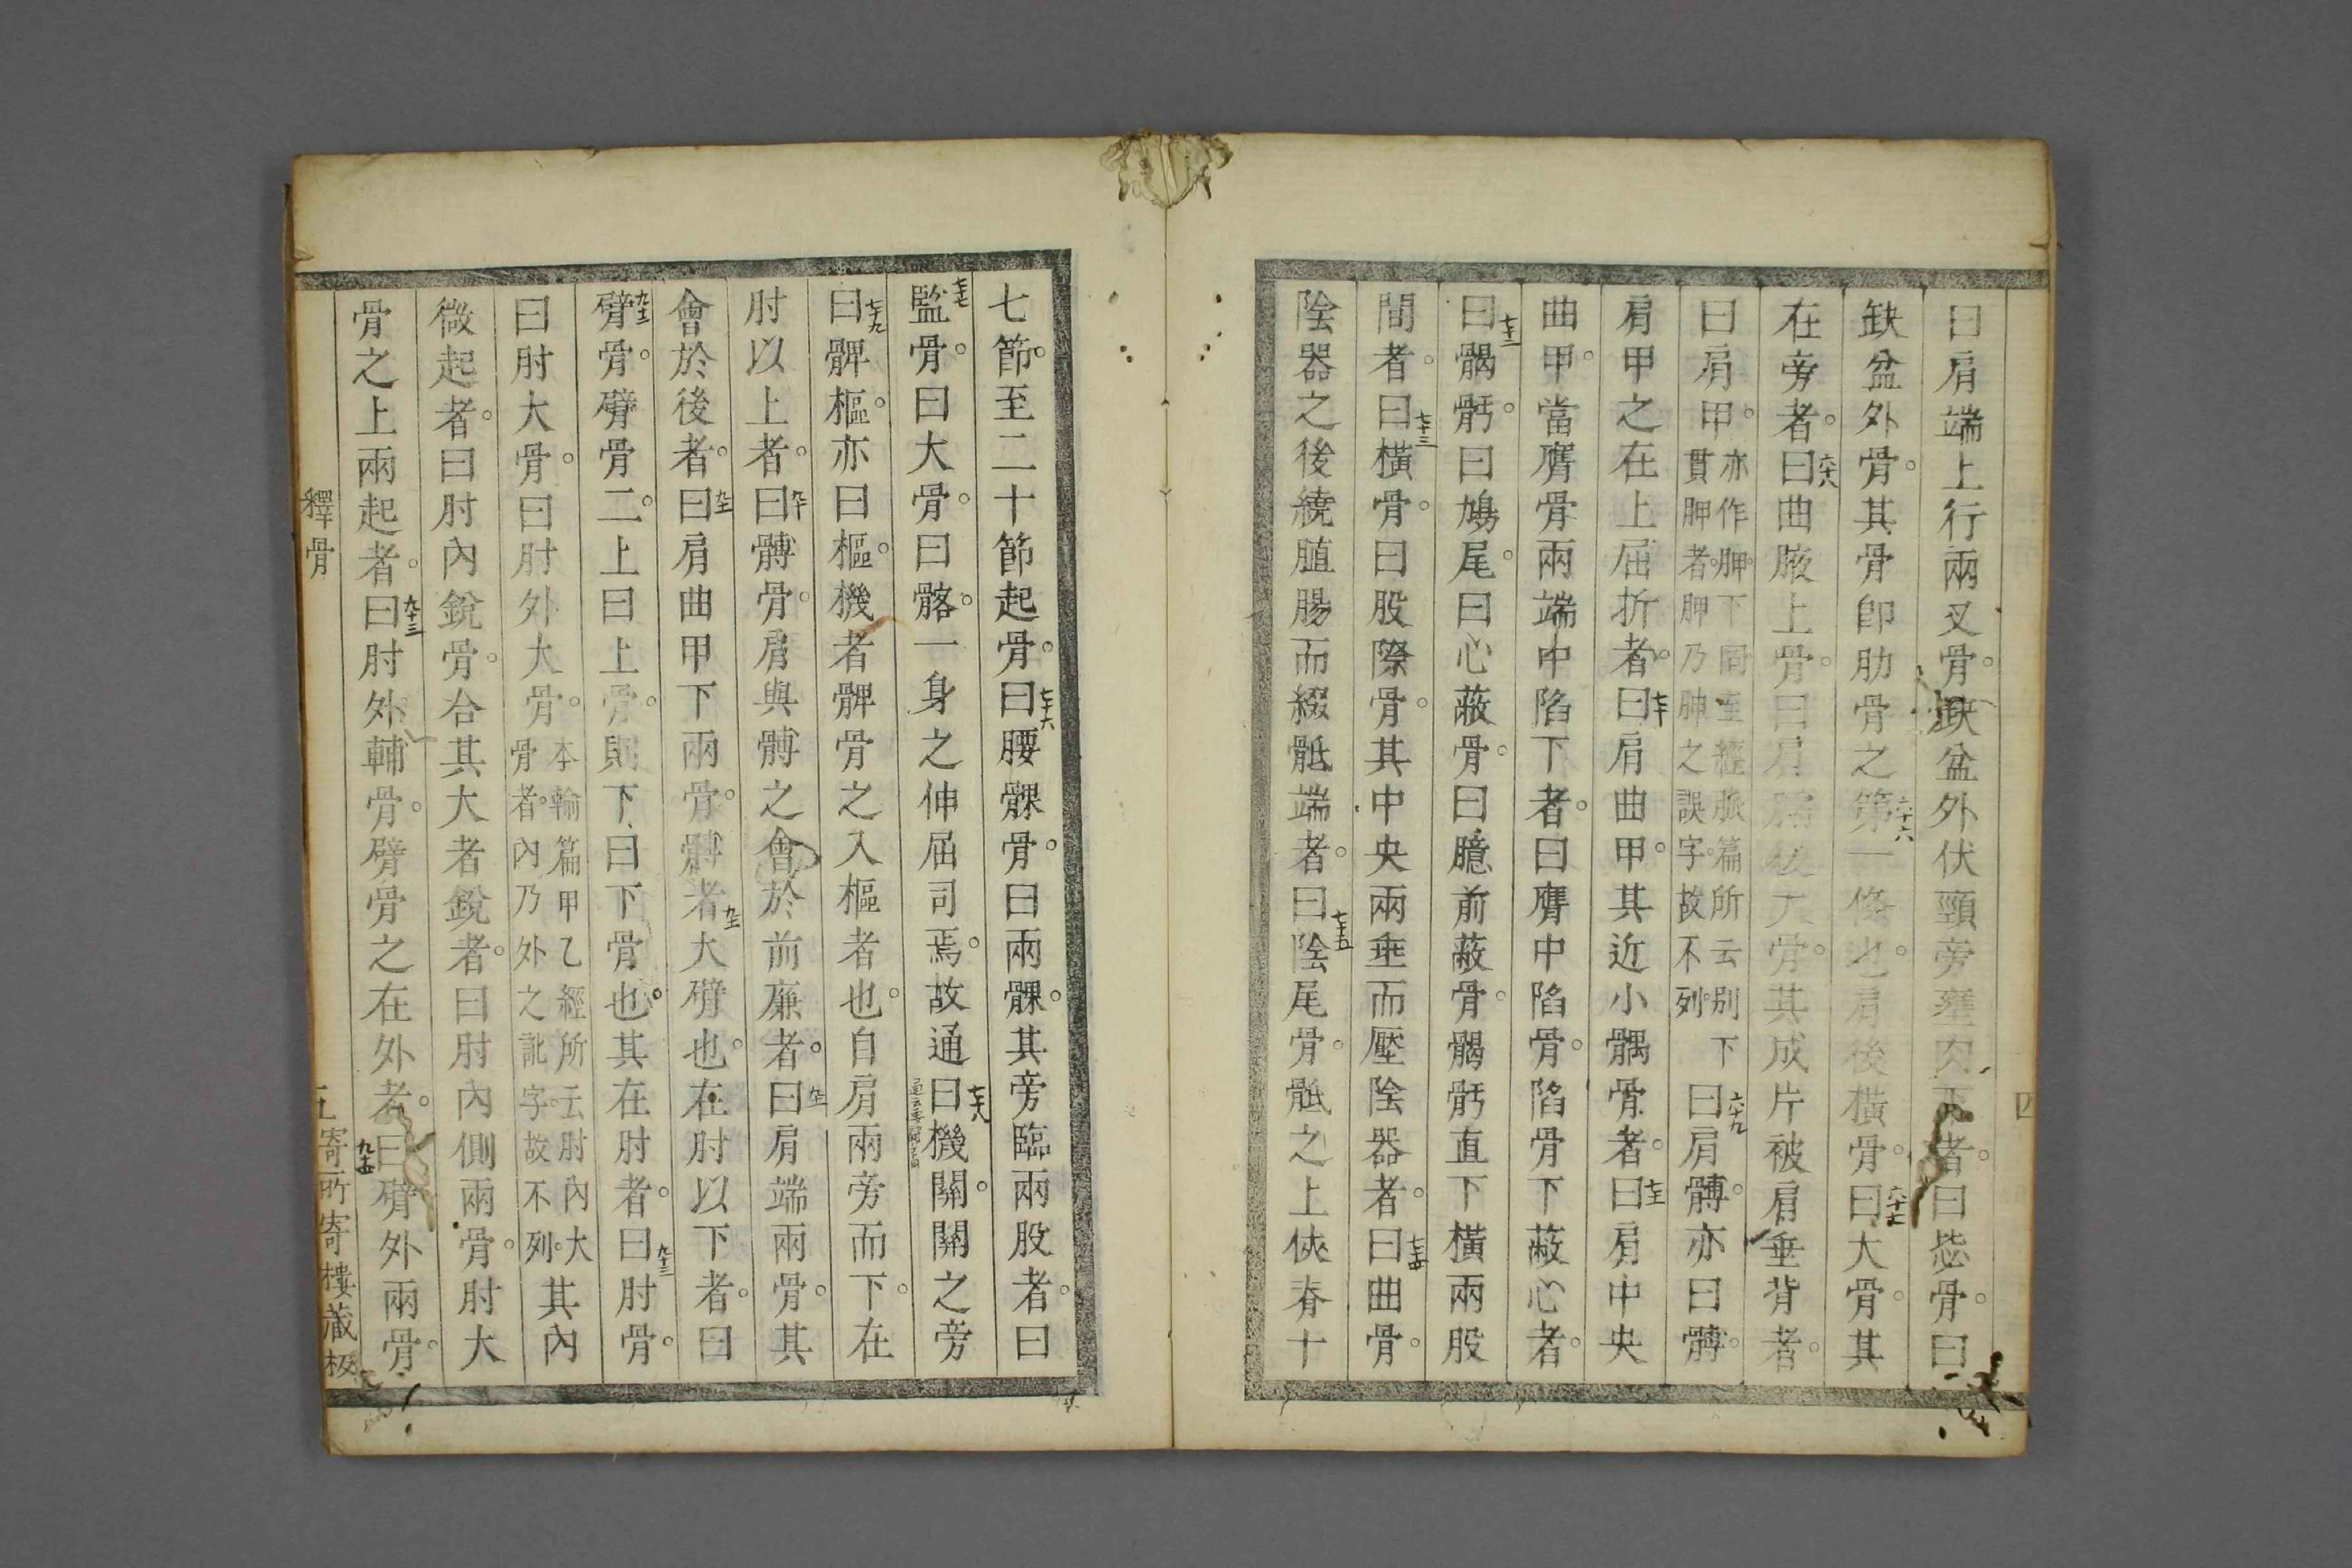 曰肩端上行兩叉骨缺盆外伏頸旁壅肉下者曰𩩲骨曰
缺盆外骨其骨卽肋骨之第一條也肩後橫骨曰大骨其
在旁者曰曲腋上骨曰肩髃後大骨其成片被肩垂背者
曰肩甲亦作胛下同至經脈篇所云别下
貫胛者胛乃胂之誤字故不列曰肩髆亦曰髆
肩甲之在上屈折者曰肩曲甲其近小髃骨者曰肩中央
曲甲當膺骨兩端中陷下者曰膺中陷骨陷骨下蔽心者
曰𩩲骬曰鳩尾曰心蔽骨曰臆前蔽骨𩩲骬直下橫兩股
間者曰橫骨曰股際骨其中央兩垂而壓陰器者曰曲骨
陰器之後繞膻腸而綴骶端者曰陰尾骨骶之上俠脊十
七節至二十節起骨曰腰髁骨曰兩髁其旁臨兩股者曰
監骨曰大骨曰髂一身之伸屈司焉故通曰機關關之旁
曰髀樞亦曰樞機者髀骨之入樞者也自肩兩旁而下在
肘以上者曰髆骨肩與髆之會於前廉者曰肩端兩骨其
會於後者曰肩曲甲下兩骨髆者大臂也在肘以下者曰
臂骨臂骨二上曰上骨則下曰下骨也其在肘者曰肘骨
曰肘大骨曰肘外大骨本輸篇甲乙經所云肘內大
骨者內乃外之訛字故不列其內
微起者曰肘內銳骨合其大者銳者曰肘內側兩骨肘大
骨之上兩起者曰肘外輔骨臂骨之在外者曰臂外兩骨
釋骨
寄所寄樓藏板